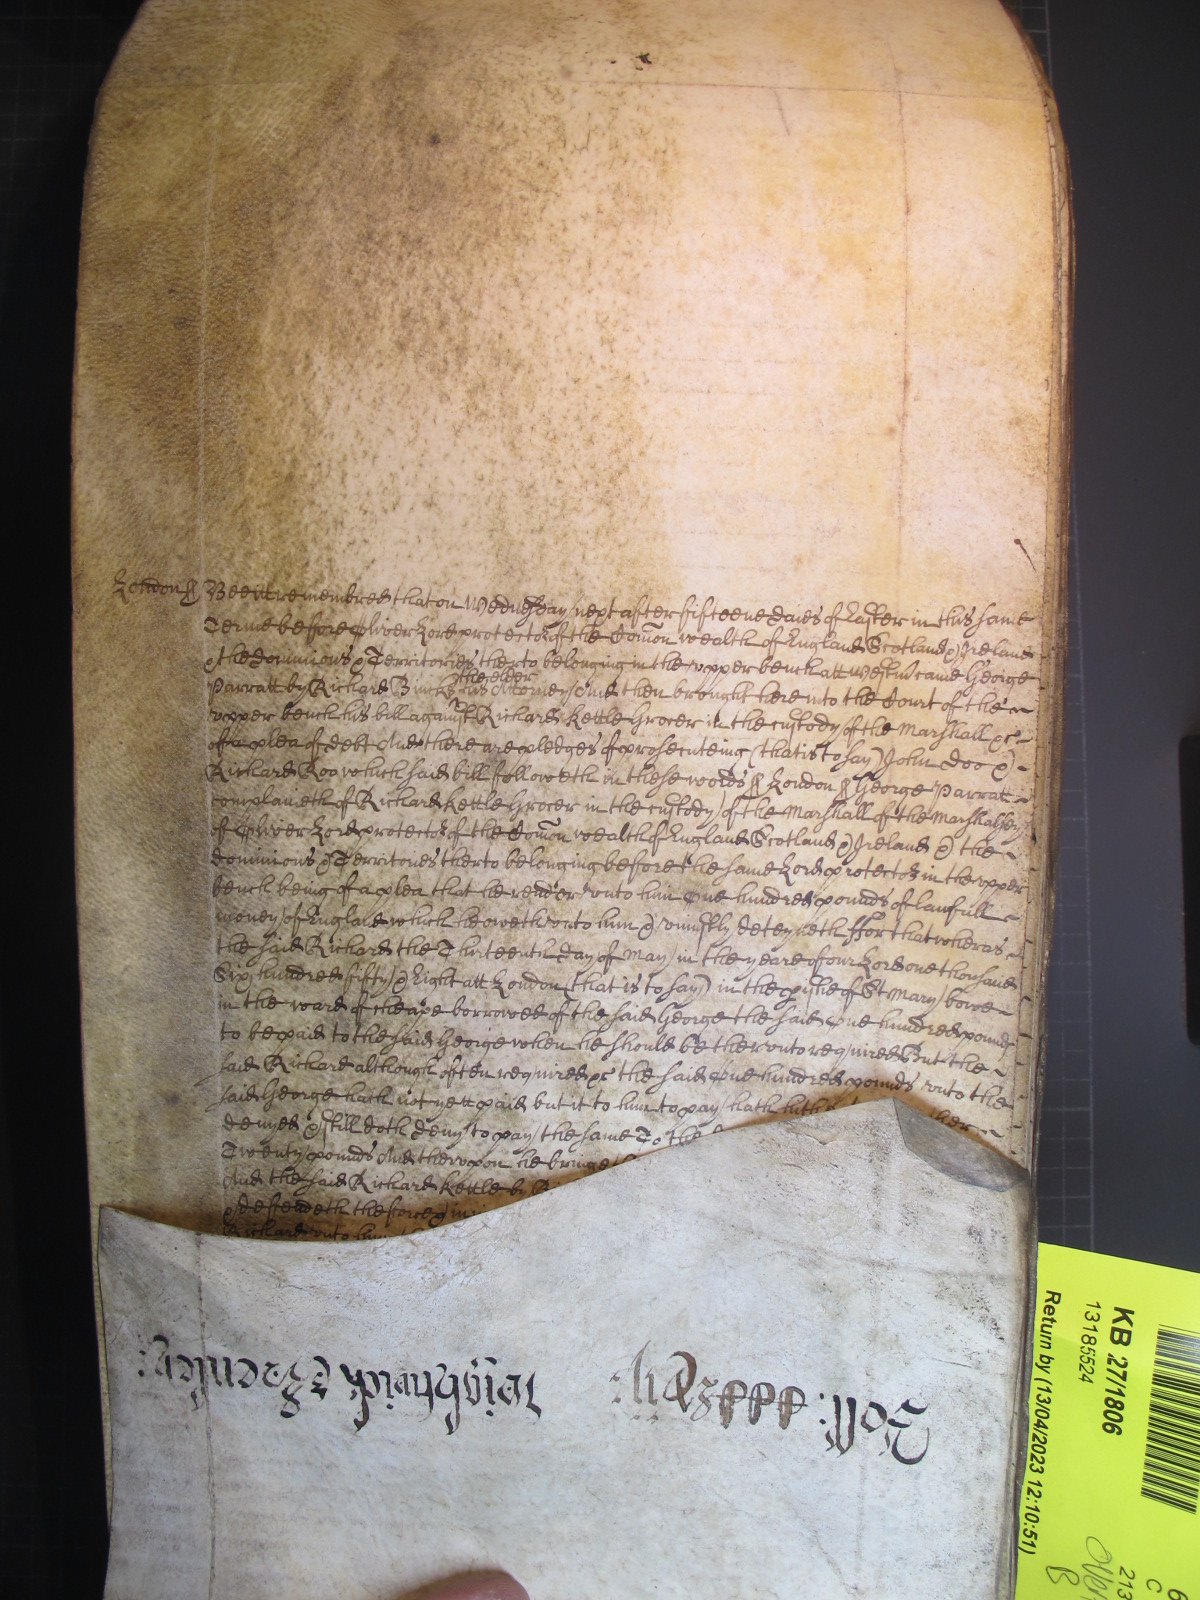 London ss Bee it remembred that on Wednesday next after fifteene daies of Easter in this same
Terme before Oliver Lord protector of the Com̄on wealth of England Scotland & Ireland
& the dominions & Territories therto belonging in the upper bench att Westm̄ came George
Parratt by Richard the elder his Attorney And then brought here into the Court of the
upper bench his bill against Richard Kettle Grocer in the custody of the Marshall &c
of a plea of debt And there are pledges of prosecuteing (that is to say) John Doo &
Richard Roo which said bill followeth in these words ss London ss George Parratt
complaineth of Richard Kettle Grocer in the custody of the Marshall of the Marshalsey
of Oliver Lord protector of the Com̄on wealth of England Scotland & Ireland & the
dominions & Territories therto belonging before the same Lord protector in the upper
bench being of a plea that he render unto him One hundred pounds of lawfull
money of England which he oweth unto him & uniustly deteyneth ffor that wheras
the said Richard the Thirteenth day of May in the yeare of our Lord one thousand
Six hundred fifty & Eight att London (that is to say) in the p̱ishe of St Mary bowe
in the ward of cheape borrowed of the said George the said One hundred pounds
to be paid to the said George when he should be therunto required But the
said Richard although often required &c the said One hundred pounds unto the
said George hath not yett paid but it to him to pay hath
denyed & still doth deny to pay the same To the
Twenty pounds And therupon he
And the said Richard Kettle by
& defendeth the force &
Richard unto him
Roll:
Wightwick &
KB 27/1806
13185524
Return by (13/04/2023 12:10:51)